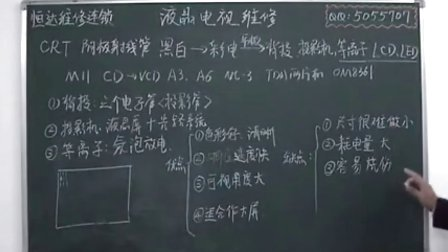 恒达维修连锁 液晶电视维修 QQ:5055707
CRT 阴极射线管 黑白→彩电→背投、投影机、等离子 LCD、LED
M11 CD→VCD A3. A6 NC-3
①背投:三个电子管<投影管>
②投影机:液晶屏十光路系统
③等离子:气泡放电
优点
①色彩好、清晰
速度快
③可视角度大
④适合作大屏
缺点:
①尺寸很难做小
②耗电量大
③容易烧伤